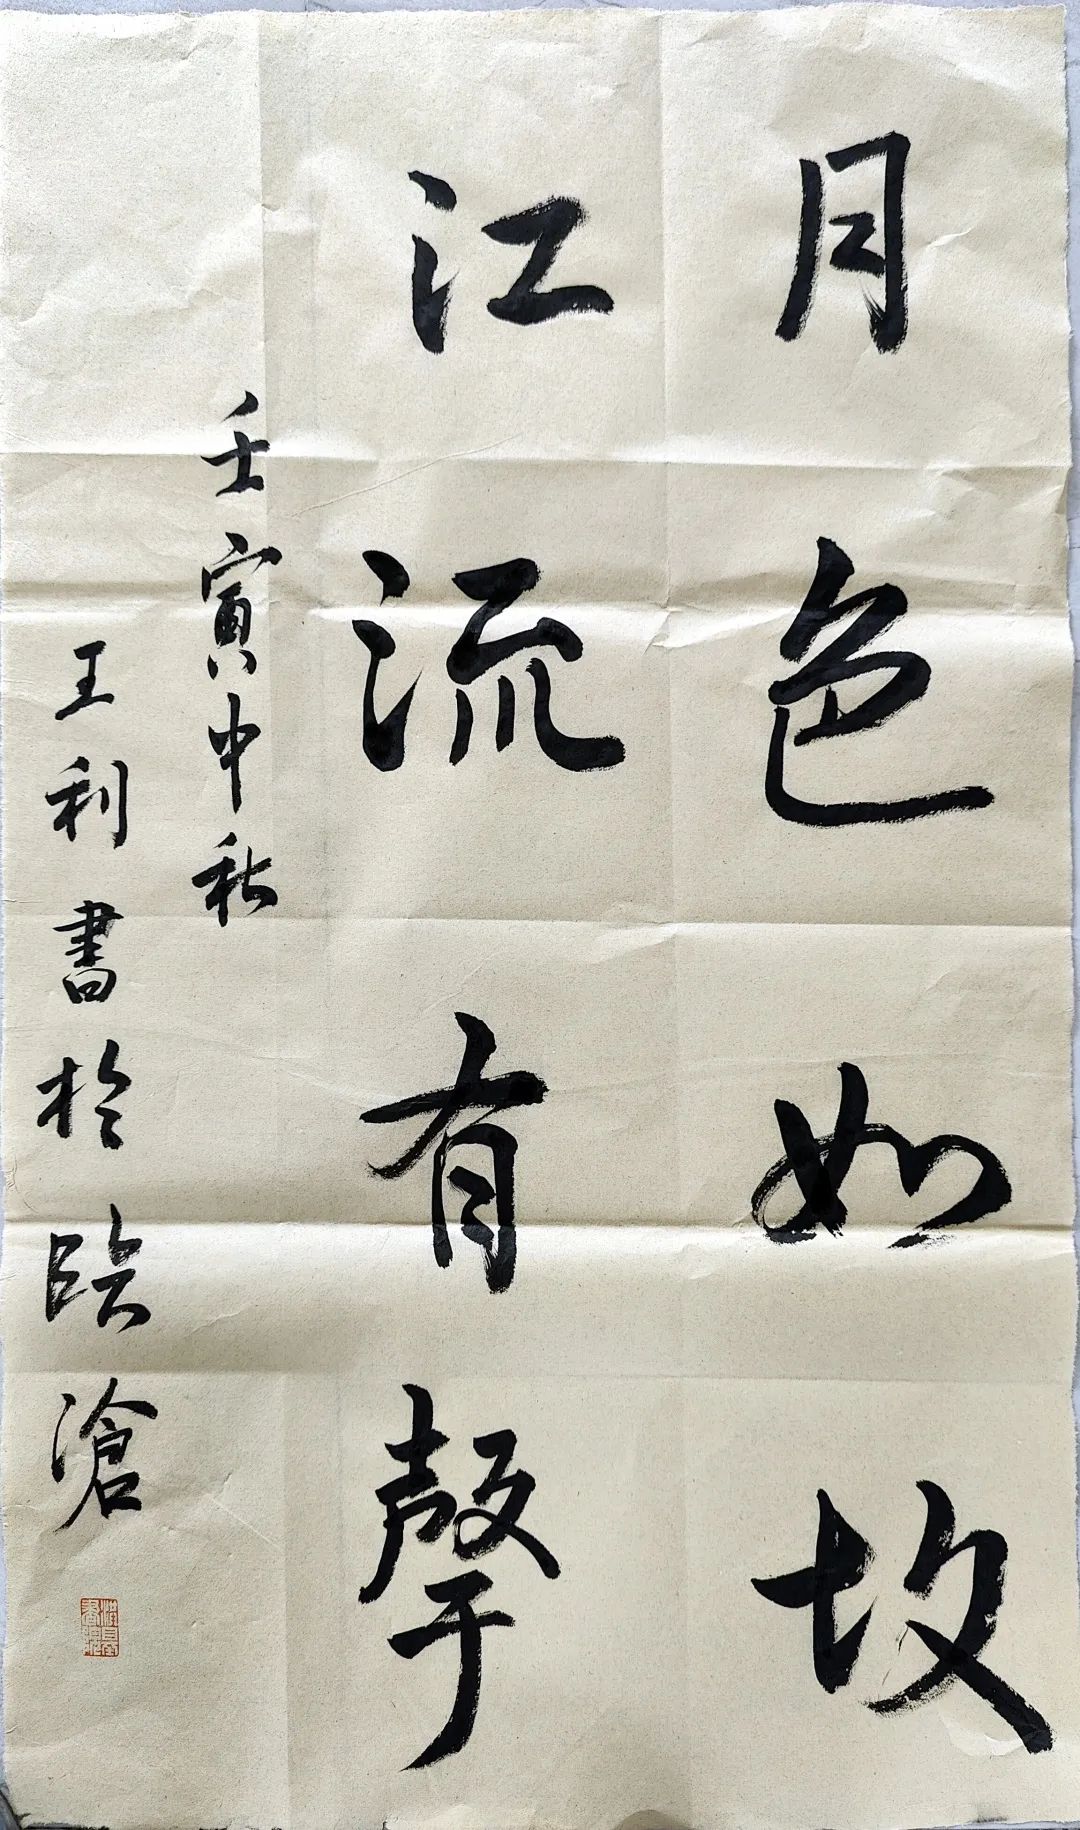 月色如故
江流有聲
壬寅中秋
王利書於臨滄